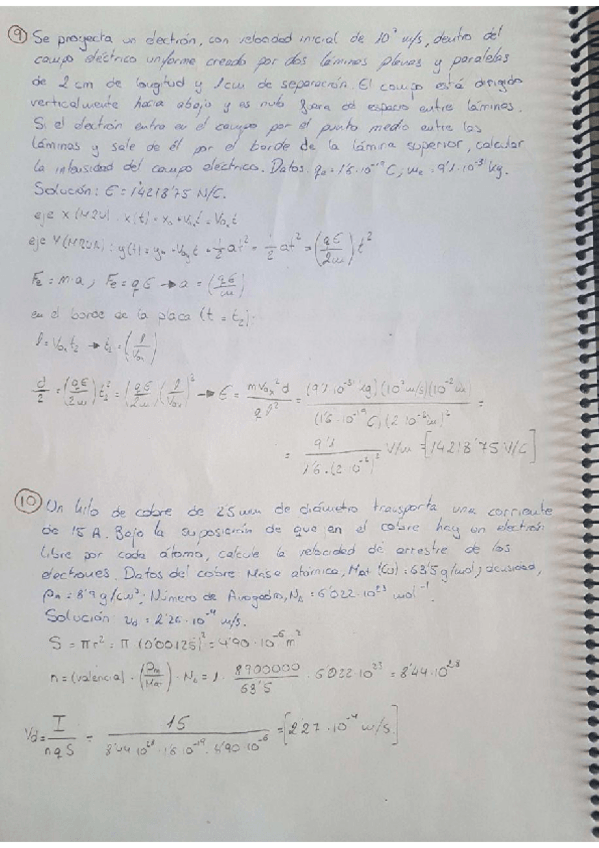 ⑨ Se proyecta un electrón, con velocidad inicial de 10⁷ m/s, dentro del
campo eléctrico uniforme creado por dos láminas planas y paralelas
de 2 cm de longitud y 1 cm de separación. El campo está dirigido
verticalmente hacia abajo y es nulo fuera del espacio entre láminas.
Si el electrón entra en el campo por el punto medio entre las
láminas y sale de él por el borde de la lámina superior, calcular
la intensidad del campo eléctrico. Datos: qₑ = 1'6·10⁻¹⁹ C, mₑ = 9'1·10⁻³¹ kg.
Solución: E = 14218'75 N/C.
eje X (MRU): x(t) = x₀ + V₀ₓt = V₀ₓt
eje Y (MRUA): y(t) = y₀ + V₀ᵧt + ½at² = ½at² = (qE/2m)t²
Fₑ = m·a, Fₑ = qE → a = (qE/m)
en el borde de la placa (t = t₂):
l = V₀ₓt₂ → t₂ = (l/V₀ₓ)
d/2 = (qE/2m)t₂² = (qE/2m)(l/V₀ₓ)² → E = mV₀ₓ²d/ql² = (9'1·10⁻³¹ kg)(10⁷ m/s)(10⁻² m)/(1'6·10⁻¹⁹ C)(2·10⁻² m)² =
= 9'1/1'6·(2·10⁻²)² V/m = [14218'75 V/C]
⑩ Un hilo de cobre de 2'5 mm de diámetro transporta una corriente
de 15 A. Bajo la suposición de que en el cobre hay un electrón
libre por cada átomo, calcule la velocidad de arrastre de los
electrones. Datos del cobre: Masa atómica, Mat (Cu) = 63'5 g/mol; densidad,
ρₘ = 8'9 g/cm³. Número de Avogadro, Nₐ = 6'022·10²³ mol⁻¹.
Solución: v_d = 2'26·10⁻⁴ m/s.
S = πr² = π (0'00125)² = 4'90·10⁻⁶ m²
n = (valencia)·(ρₘ/Mat)·Nₐ = 1·8900000/63'5·6'022·10²³ = 8'44·10²⁸
Vd = I/nqS = 15/8'44·10²⁸·1'6·10⁻¹⁹·4'90·10⁻⁶ = [2'27·10⁻⁴ m/s]